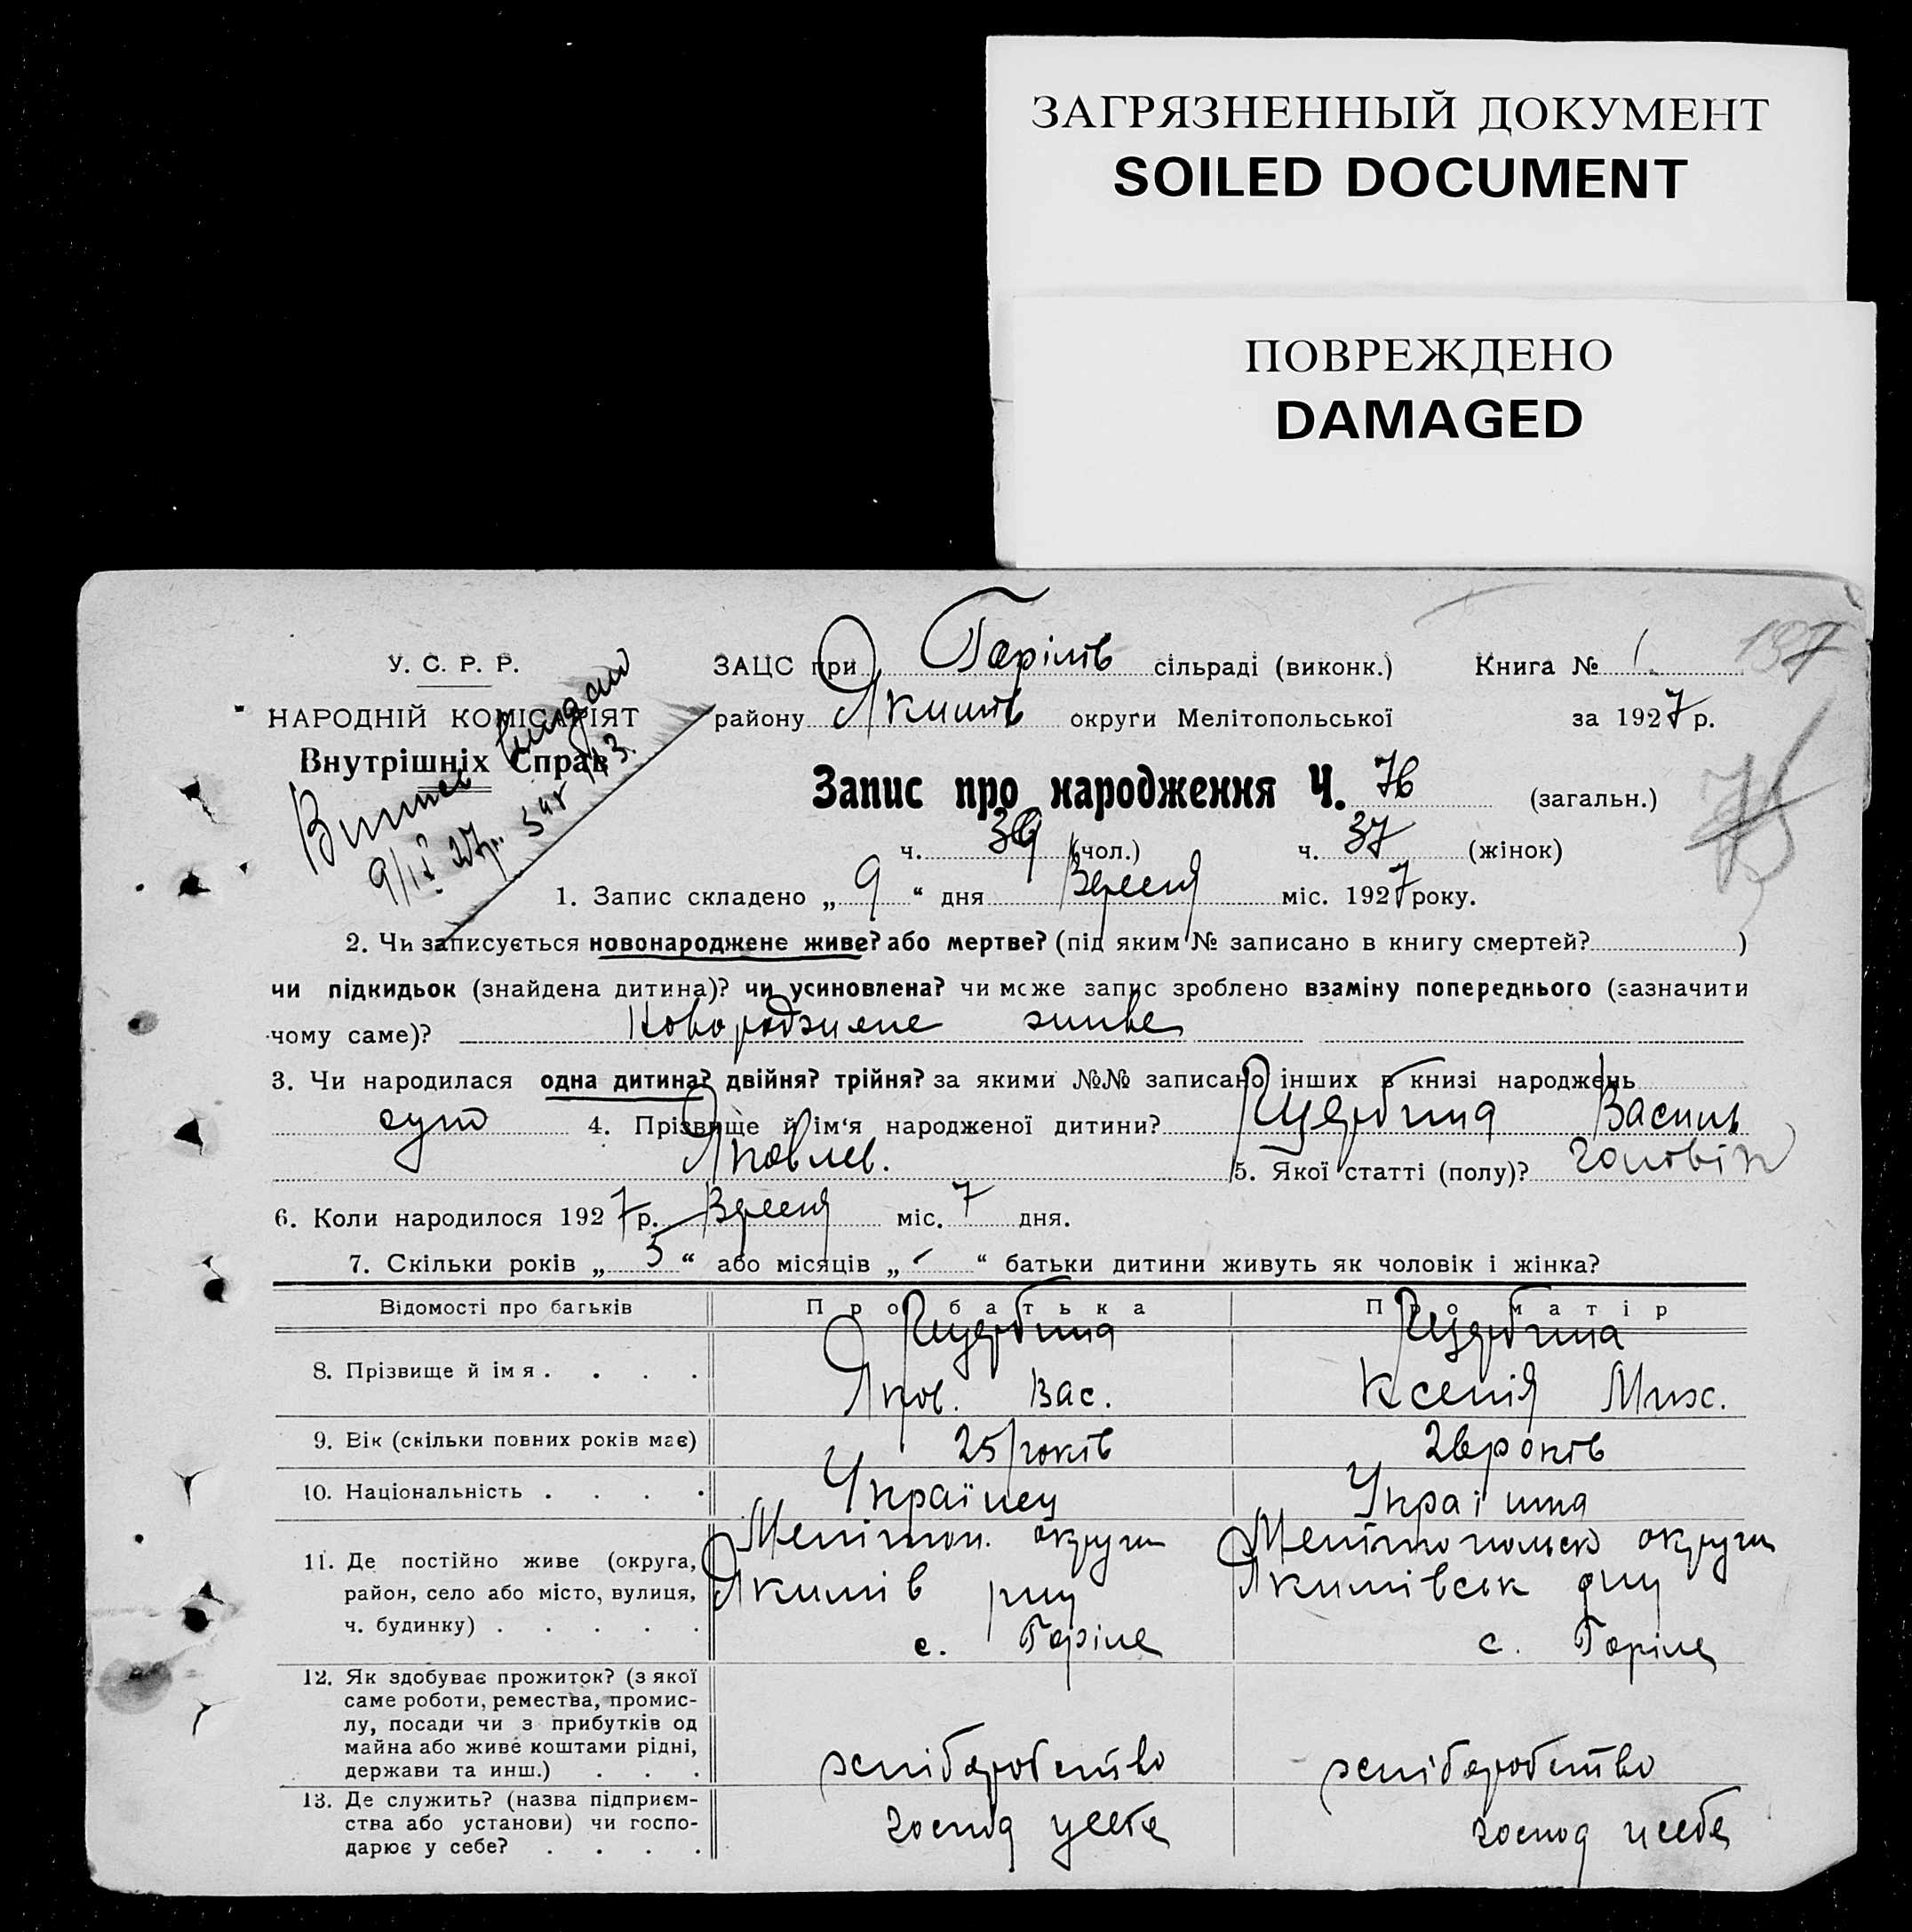 ЗАГРЯЗНЕННЫЙ ДОКУМЕНТ
SOILED DOCUMENT
ПОВРЕЖДЕНО
DAMAGED
У. С. Р. Р.
НАРОДНІЙ КОМІСАРІЯТ
Внутрішніх Справ
ЗАЦС при Горілів сільраді (виконк.) Книга № 1. 137
району Якимів округи Мелітопольської за 1927 р.
Запис про народження Ч. 76 (загальн.)
ч. 39 (чол.) ч. 37 (жінок)
1. Запис складено „ 9 “ дня Вересня міс. 1927 року.
2. Чи записується новонароджене живе? або мертве? (під яким № записано в книгу смертей? )
чи підкидьок (знайдена дитина)? чи усиновлена? чи може запис зроблено взаміну попереднього (зазначити
чому саме)? Новороджене живе
3. Чи народилася одна дитина? двійня? трійня? за якими №№ записано інших в книзі народжень
одно 4. Прізвище й ім‘я народженої дитини? Щербина Василь
Яковлев. 5. Якої статті (полу)? чоловік
6. Коли народилося 1927 р. Вересня міс. 7 дня.
7. Скільки років „ 5 “ або місяців „ - “ батьки дитини живуть як чоловік і жінка?
Відомості про батьків Про батька Про матір
8. Прізвище й ім я . . . . Щербина Яков. Вас. Щербина Ксенія Мих.
9. Вік (скільки повних років має) 25 років 26 років
10. Національність . . . . Українец Україінка
11. Де постійно живе (округа, Мелітоп. округи Мелітопольск округи
район, село або місто, вулиця, Якимів рну Якимівськ рну
ч. будинку) . . . . . с. Горіле с. Горіле
12. Як здобуває прожиток? (з якої
саме роботи, ремества, промис-
лу, посади чи з прибутків од
майна або живе коштами рідні,
держави та инш.) . . . хліборобство хліборобство
13. Де служить? (назва підприєм-
ства або установи) чи госпо-
дарює у себе? . . . . господ у себе господ у себе